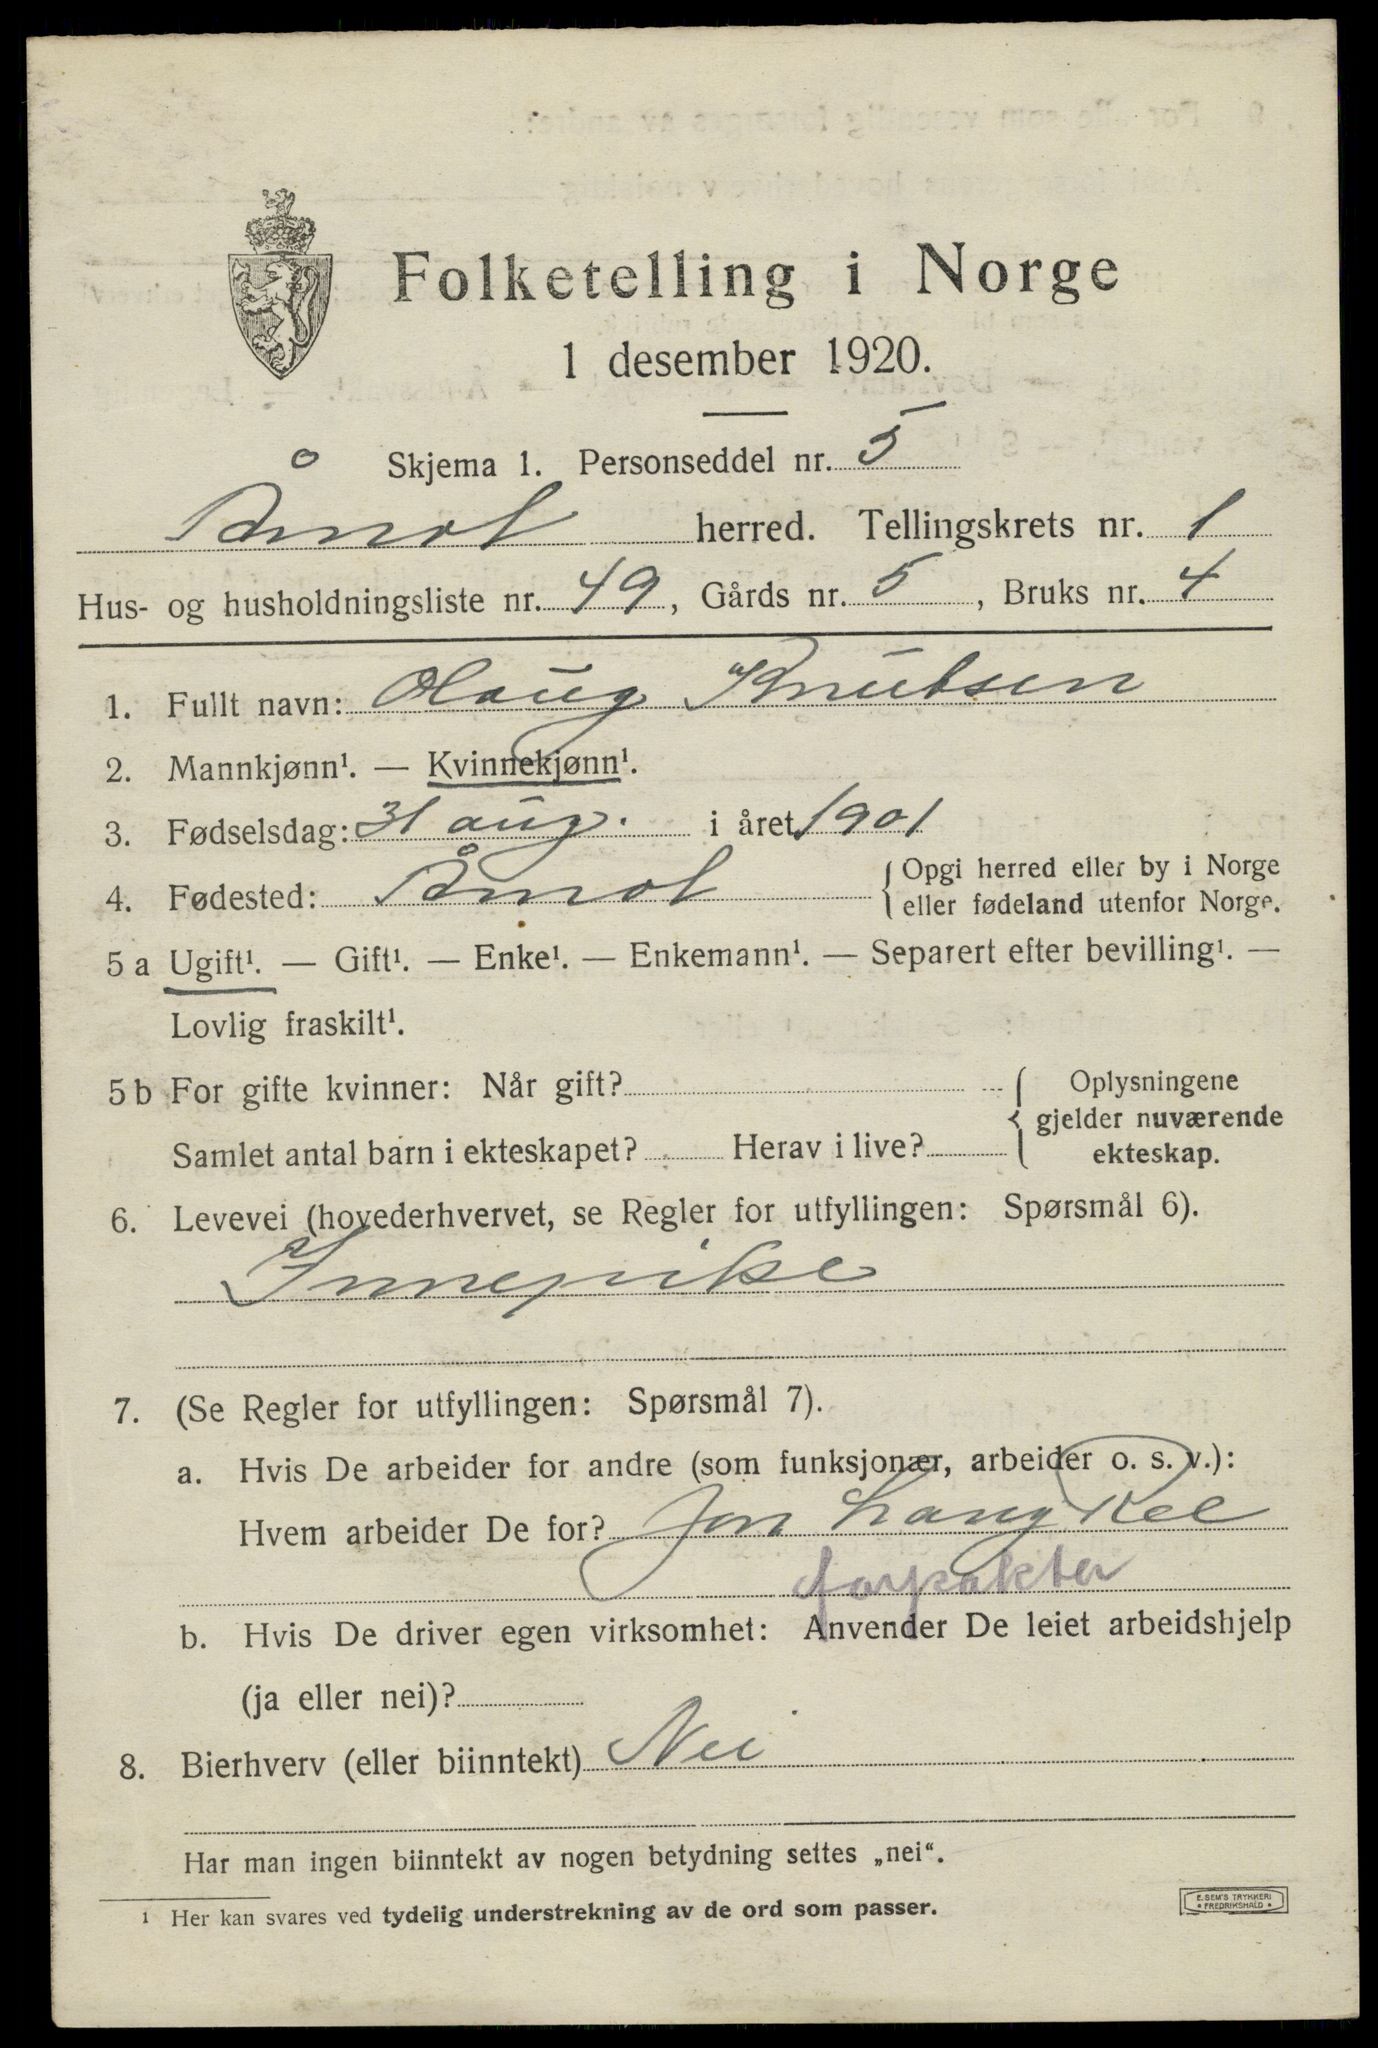 Folketelling i Norge
1 desember 1920.
Skjema 1. Personseddel nr. 5
Åmot herred. Tellingskrets nr. 1
Hus- og husholdningsliste nr. 49, Gårds nr. 5, Bruks nr. 4
1. Fullt navn: Olaug Knutsen
2. Mannkjønn¹. — Kvinnekjønn¹.
3. Fødselsdag: 31 aug. i året 1901
4. Fødested: Åmot { Opgi herred eller by i Norge
eller fødeland utenfor Norge.
5 a Ugift¹. — Gift¹. — Enke¹. — Enkemann¹. — Separert efter bevilling¹. —
Lovlig fraskilt¹.
5 b For gifte kvinner: Når gift? { Oplysningene
gjelder nuværende
Samlet antal barn i ekteskapet? Herav i live? ekteskap.
6. Levevei (hovederhvervet, se Regler for utfyllingen: Spørsmål 6).
Innepike
7. (Se Regler for utfyllingen: Spørsmål 7).
a. Hvis De arbeider for andre (som funksjonær, arbeider o. s. v.):
Hvem arbeider De for? Jon Lang Ree
forpakter
b. Hvis De driver egen virksomhet: Anvender De leiet arbeidshjelp
(ja eller nei)?
8. Bierhverv (eller biinntekt) Nei
Har man ingen biinntekt av nogen betydning settes „nei“.
¹ Her kan svares ved tydelig understrekning av de ord som passer.
E. SEM'S TRYKKERI
• FREDRIKSHALD •